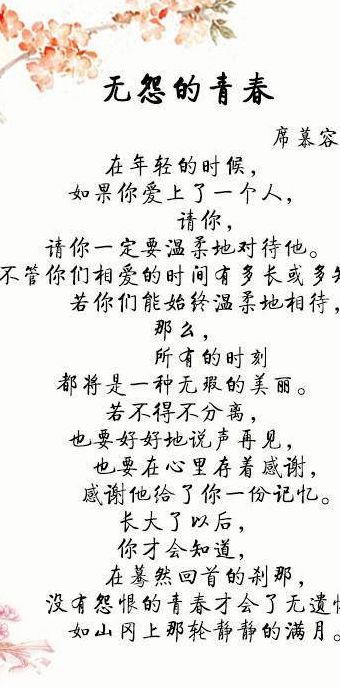 无怨的青春
席慕容
在年轻的时候，
如果你爱上了一个人，
请你，
请你一定要温柔地对待他。
不管你们相爱的时间有多长或多
若你们能始终温柔地相待，
那么，
所有的时刻
都将是一种无瑕的美丽。
若不得不分离，
也要好好地说声再见，
也要在心里存着感谢，
感谢他给了你一份记忆。
长大了以后，
你才会知道，
在蓦然回首的刹那，
没有怨恨的青春才会了无遗
如山冈上那轮静静的满月。